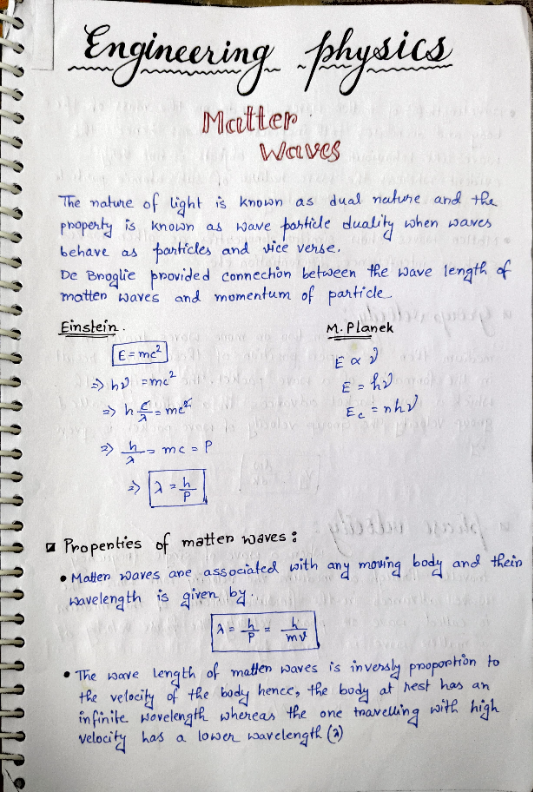 Engineering physics
Matter
Waves
The nature of light is known as dual nature and the
property is known as wave particle duality when waves
behave as particles and vice verse.
De Broglie provided connection between the wave length of
matter waves and momentum of particle
Einstein.
E = mc²
⇒ hν = mc²
⇒ h c/λ = mc²
⇒ h/λ = mc = P
⇒ λ = h/P
M. Planek
E ∝ ν
E = hν
E꜀ = nhν
Properties of matter waves:
• Matter waves are associated with any moving body and their
wavelength is given by.
λ = h/P = h/mv
• The wave length of matter waves is inversly proportion to
the velocity of the body hence, the body at rest has an
infinite wavelength whereas the one travelling with high
velocity has a lower wavelength (λ)